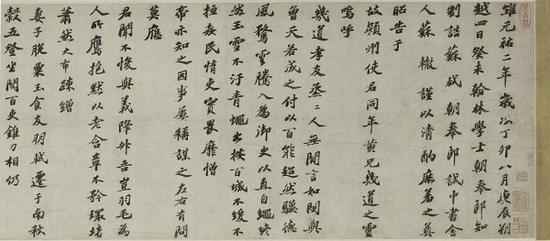 維元祐二年歲次丁卯八月庚辰朔
越四日癸未翰林學士朝奉郎知
制誥蘇軾朝奉郎試中書舍
人蘇轍謹以清酌庶羞之奠
昭告于
故潁州使君同年黃兄幾道之靈
嗚呼
幾道孝友烝烝人無間言如閔與
曾天若成之付以百能超然驥德
風騖雲騰入為御史以直自繩終
然玉雪不汙青蠅出按百城不緩不
絙姦民惰吏實畏靡憎
帝亦知之因事屢稱謀之左右有問
莫應
君聞不悛與義降升吾豈羽毛為
人所鷹抱默以老含章不矜環堵
蕭然大布疎繒
妻子脫粟玉食友朋軾遷于南秋
穀五登坐閱百吏錐刀相仍